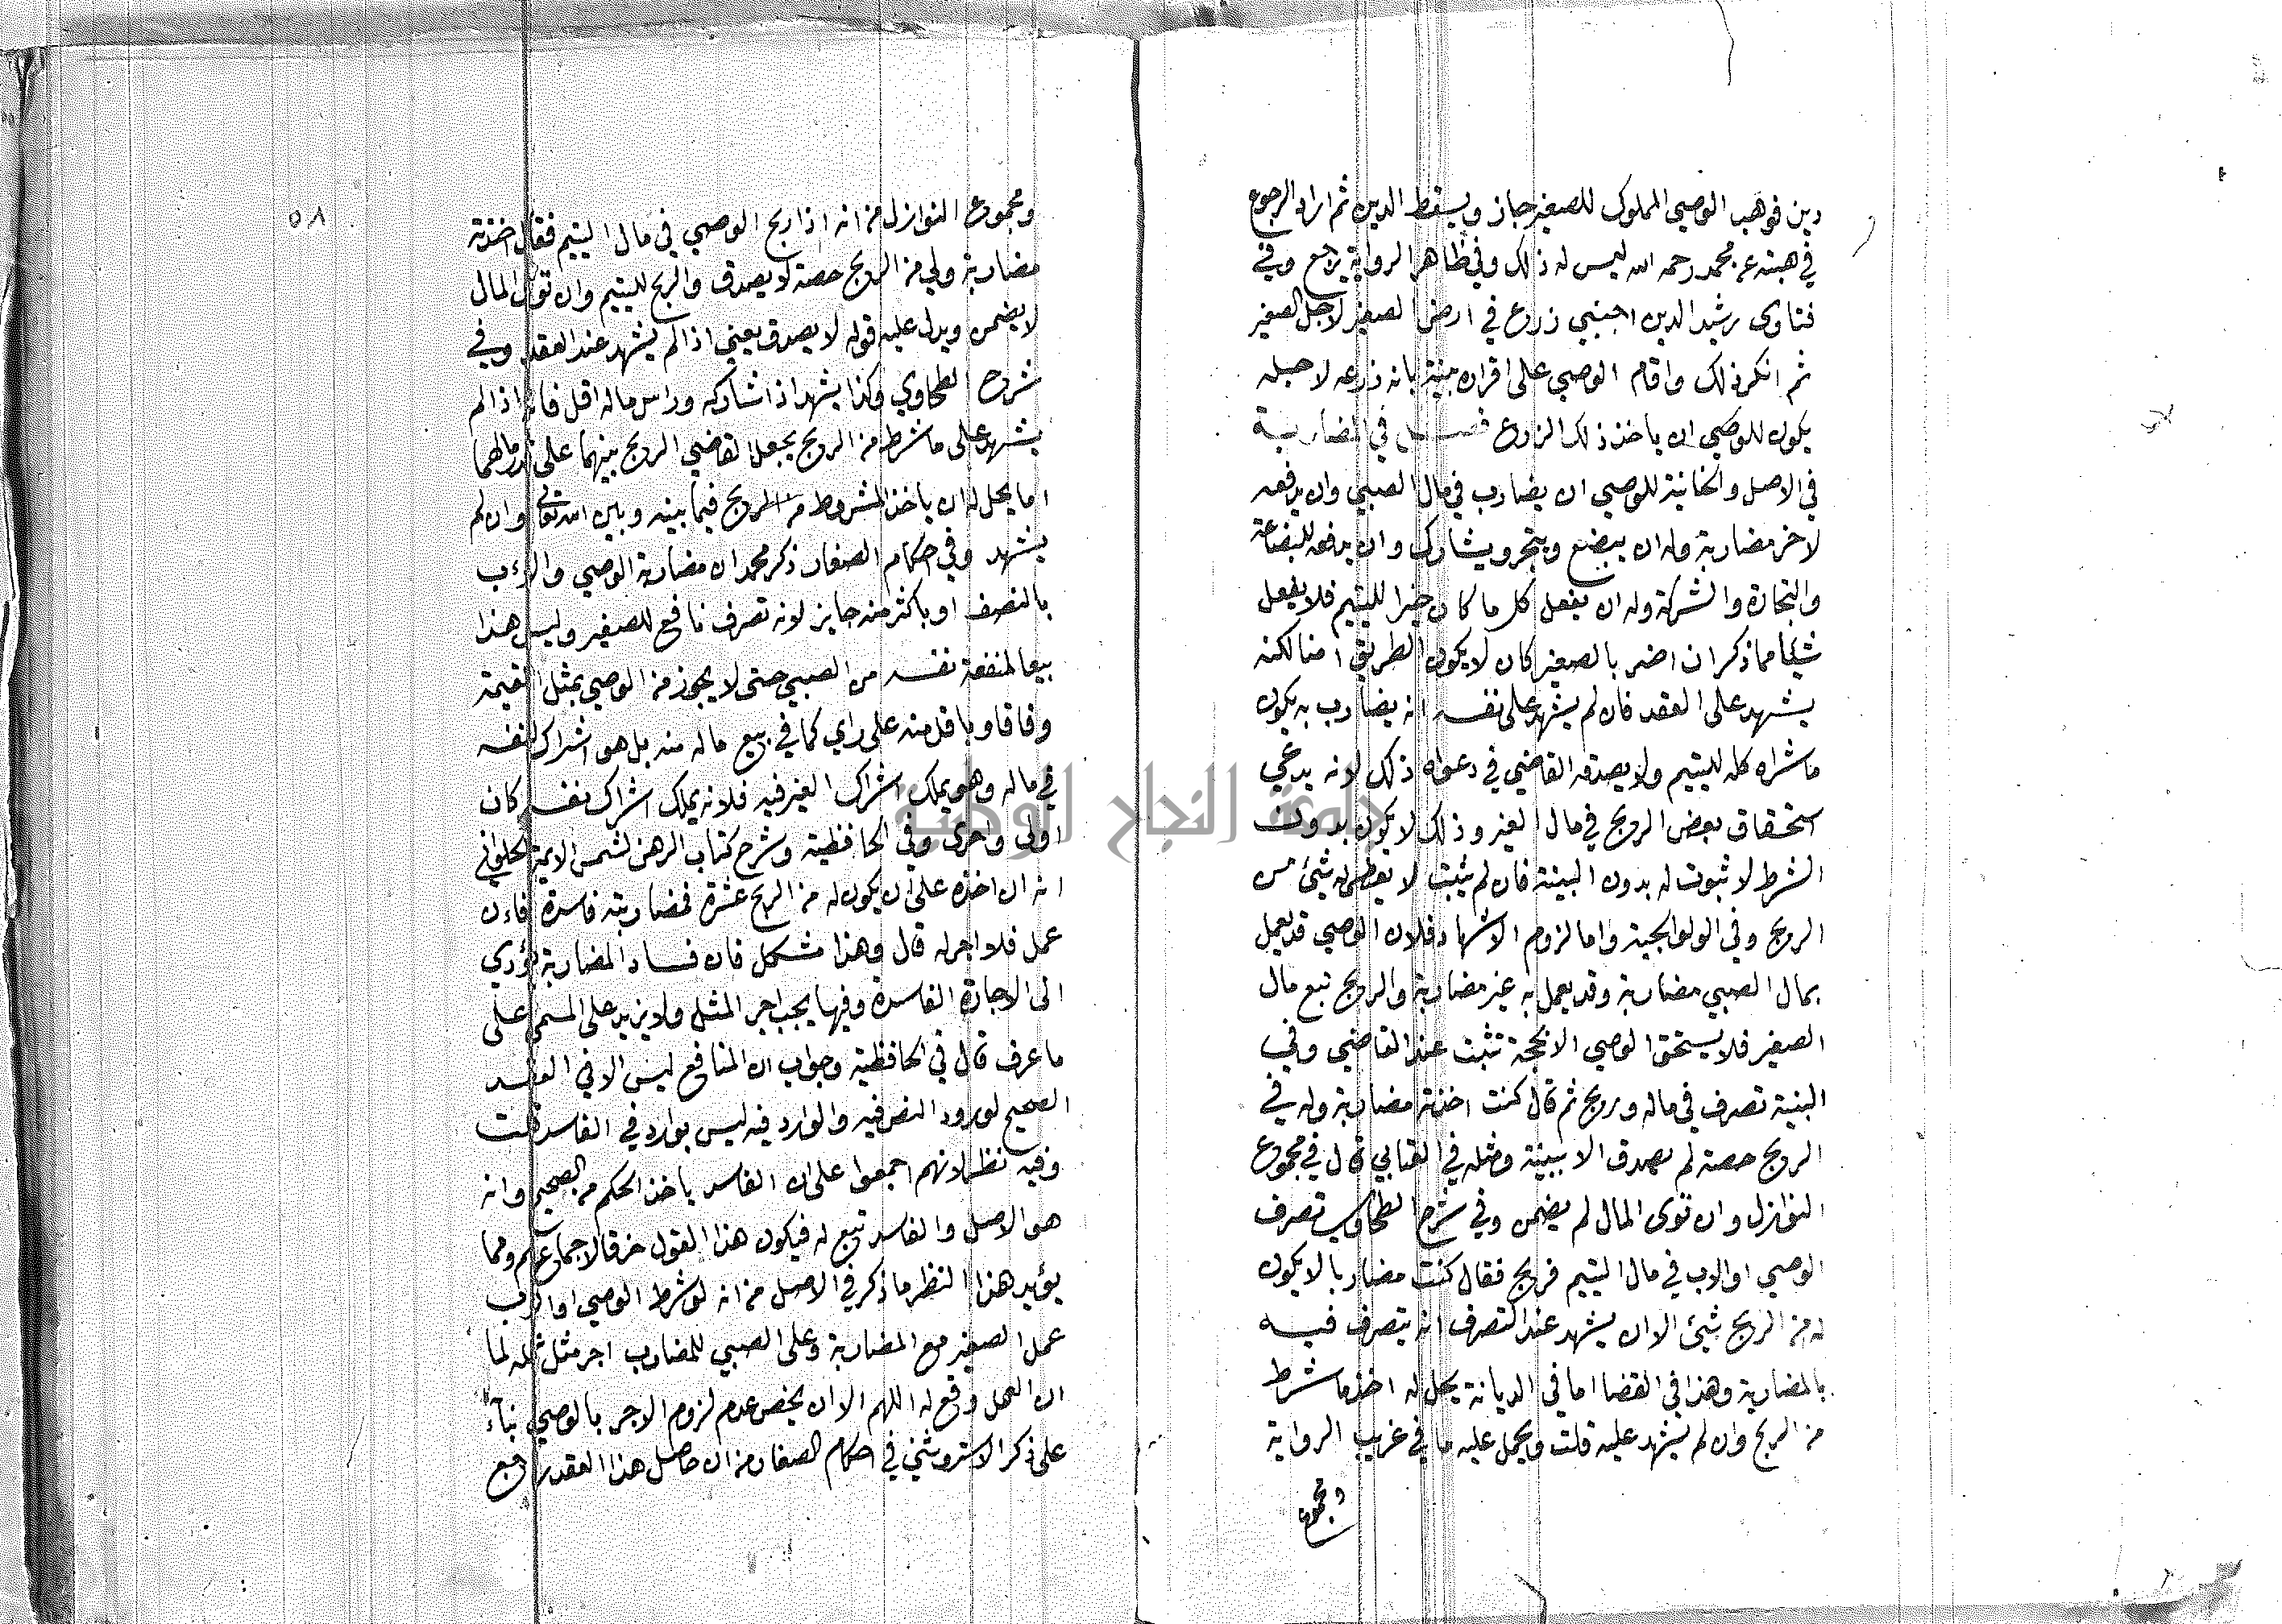 دين فوهب الوصي المملوك للصغير جاز ويسقط الدين ثم اراد الرجوع
في هبته عن محمد رحمه الله ليس له ذلك وفي ظاهر الرواية يرجع وفي
فتاوى رشيد الدين اجنبي زرع في ارض الصغير لاجل الصغير
ثم انكر ذلك واقام الوصي على اقراره بينة بانه زرعه لاجله
يكون للوصي ان ياخذ ذلك الزرع فصل في المضاربة
في الاصل والخانية للوصي ان يضارب في مال الصبي وان يدفعه
لاخر مضاربة وله ان يبضع ويتجر ويشارك وان يدفعه للبضاعة
والتجارة والشركة وله ان يفعل كل ما كان خيرا لليتيم فلا يفعل
شيئا مما ذكر ان اضر بالصغير كان لا يكون الطريق امنا لكنه
يشهد على العقد فان لم يشهد على نفسه انه يضارب به يكون
ما شراه كله لليتيم ولا يصدقه القاضي في دعواه ذلك لانه يدعي
استحقاق بعض الربح في مال الغير وذلك لا يكون بدون
الشرط لا ثبوت له بدون البينة فان لم يثبت لا يعطى له شيئ من
الربح وفي الولوالجية واما لزوم الاشهاد فلان الوصي قد يعمل
بمال الصبي مضاربة وقد يعمل به غير مضاربة والربح تبع مال
الصغير فلا يستحق الوصي الا بحجة تثبت عند القاضي وفي
البنية تصرف في ماله وربح ثم قال كنت اخذته مضاربة وله في
الربح حصة لم يصدق الا ببينة ومثله في العتابي قال في مجموع
النوازل وان توى المال لم يضمن وفي شرح الطحاوي تصرف
الوصي او الاب في مال اليتيم فربح فقال كنت مضاربا لا يكون
له من الربح شيئ الا ان يشهد عند التصرف انه يتصرف فيه
بالمضاربة وهذا في القضا اما في الديانة يحل له اخذ ما شرط
من الربح وان لم يشهد عليه قلت ويحمل عليه ما في غريب الرواية
ومجموع
٥٨
ومجموع النوازل من انه اذا ربح الوصي في مال اليتيم فقال اخذته
مضاربة ولي من الربح حصة لا يصدق والربح لليتيم وان توى المال
لا يضمن ويدل عليه قوله لا يصدق يعني اذا لم يشهد عند العقد وفي
شرح الطحاوي وكذا يشهد اذا شاركه وراس ماله اقل فانه اذا لم
يشهد على ما شرط من الربح يجعل القاضي الربح بينهما على قدر مالهما
اما يحل له ان ياخذ المشروط من الربح فيما بينه وبين الله تعالى وان لم
يشهد وفي احكام الصغار ذكر محمد ان مضاربة الوصي والاب
بالنصف او باكثر منه جايز لانه تصرف نافع للصغير وليس هذا
بيعا لمنفعة نفسه من الصبي حتى لا يجوز من الوصي بمثل القيمة
وفاقا وباقل منه على راي كما في بيع ماله منه بل هو اشراك لنفسه
في ماله وهو يملك اشراك الغير فيه فلانه يملك اشراك نفسه كان
اولى واحرى وفي الحافظية وشرح كتاب الرهن لشمس الايمة الحلواني
انه ان اخذه على ان يكون له من الربح عشرة فمضاربته فاسدة فان
عمل فلا اجر له قال وهذا مشكل فان فساد المضاربة يؤدي
الى الاجارة الفاسدة وفيها يجب اجر المثل ولا يزيد على المسمى على
ما عرف قال في الحافظية وجواب ان المنافع ليس الا في العقد
الصحيح لورود النص فيه والوارد فيه ليس بوارد في الفاسد قلت
وفيه نظر لانهم اجمعوا على ان الفاسد ياخذ الحكم من الصحيح وانه
هو الاصل والفاسد تبع له فيكون هذا القول خرقا لاجماعهم ومما
يؤيد هذا النظر ما ذكر في الاصل من انه لو شرط الوصي او الاب
عمل الصغير مع المضاربة وعلى الصبي للمضارب اجر مثل عمله لما
ان العمل وقع له اللهم الا ان يخص عدم لزوم الاجر بالوصي بناء
على ذكر الاستروشني في احكام الصغار من ان حاصل هذا العقد راجع
جامعة النجاح الوطنية